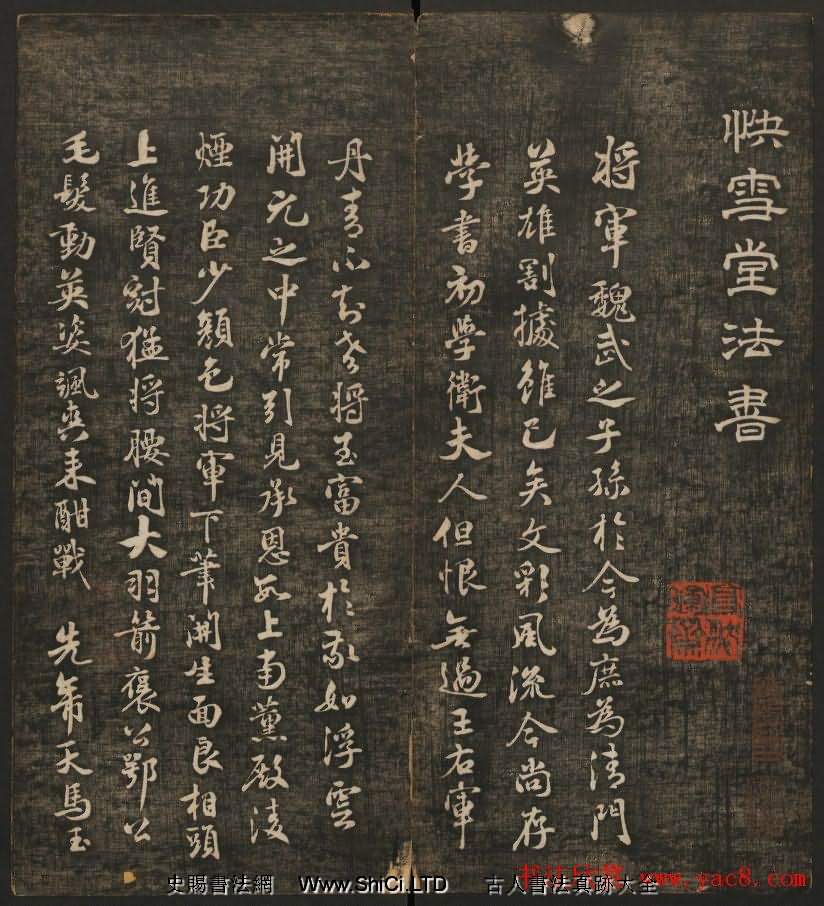 快雪堂法書
将軍魏武之子孫於今為庶為清門
英雄割據雖已矣文彩風流今尚存
学書初學衛夫人但恨無過王右軍
丹青不知老将至富貴於我如浮雲
開元之中常引見承恩數上南薰殿凌
煙功臣少顏色将軍下筆開生面良相頭
上進賢冠猛将腰間大羽箭褒公鄂公
毛髮動英姿颯爽来酣戰 先帝天馬玉
书法欣赏 www.yac8.com
史賜書法網 Www.ShiCi.LTD 古人書法真跡大全